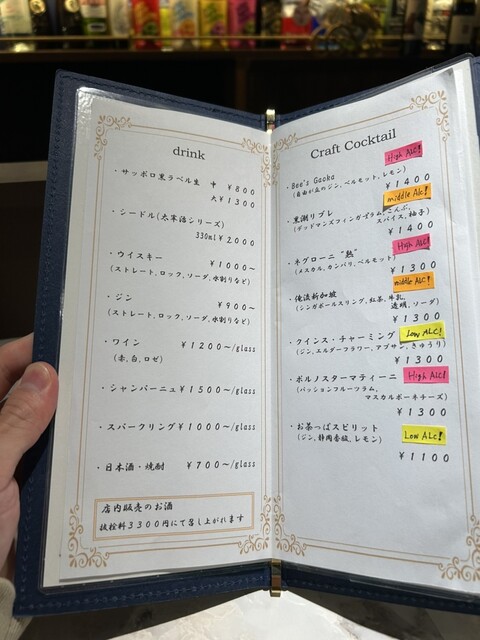 drink
・サッポロ黒ラベル生 中 ￥800
大￥1300
・シードル(太宰治シリーズ)
330ml￥2000
・ウイスキー ￥1000～
(ストレート、ロック、ソーダ、水割りなど)
・ジン ￥900～
(ストレート、ロック、ソーダ、水割りなど)
・ワイン ￥1200～/glass
(赤、白、ロゼ)
・シャンパーニュ￥1500～/glass
・スパークリング￥1000～/glass
・日本酒・焼酎 ￥700～/glass
店内販売のお酒
抜栓料3300円にて召し上がれます
Craft Cocktail
High ALC!
・Bee's Gaoka
(自由が丘のジン、ベルモット、レモン)
￥1400
middle ALC!
・黒潮リブレ
(デッドマンズフィンガーズラム、こんぶ、
スパイス、柚子)
￥1400
High ALC!
・ネグローニ "熟"
(メスカル、カンパリ、ベルモット)
￥1300
middle ALC!
(シンガポールスリング、紅茶、牛乳、
透明、ソーダ)
￥1300
・クインス・チャーミング Low ALC!
(ジン、エルダーフラワー、アブサン、きゅうり)
￥1300
・ポルノスターマティーニ High ALC!
(パッションフルーツラム、
マスカルポーネチーズ)
￥1300
・お茶っぱスピリット
(ジン、静岡香駿、レモン) Low ALC!
￥1100